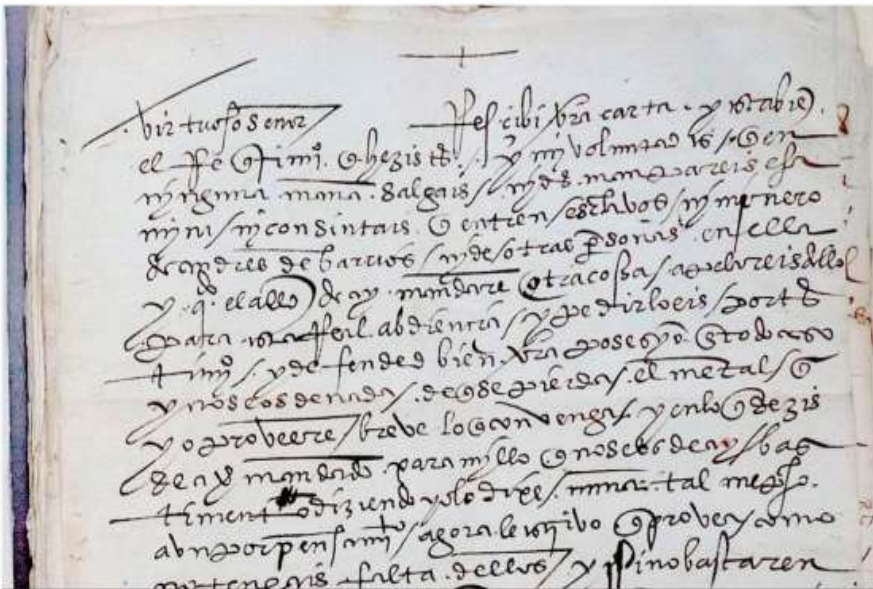 virtuoso señor Resçibi vra carta. y esta bie
el Re qrimio. q hezistes. y mi voluntad es q en
ninguna mana. salgais ni desmanpareis esa
mina ni consintais q entren esclavos ni minero
de andres de barrios ni de otras psonas en ella
y qdo el allde ay mandare otra cossa apelareis dello
para esta Real abdiencia y pedirloeis por tes
timio y defended bien vra posesyo q todo caso
y no se os de nada de q se pierda el metal q
yo proveere breve lo q convenga y en lo q dezis
de ay mandado para millo q no se os de ay bas
timento diziendo yo lo dixe nunca tal me paso
abn por pensamito agora le escrivo q provea como
no tengais falta dellos y si no bastaren